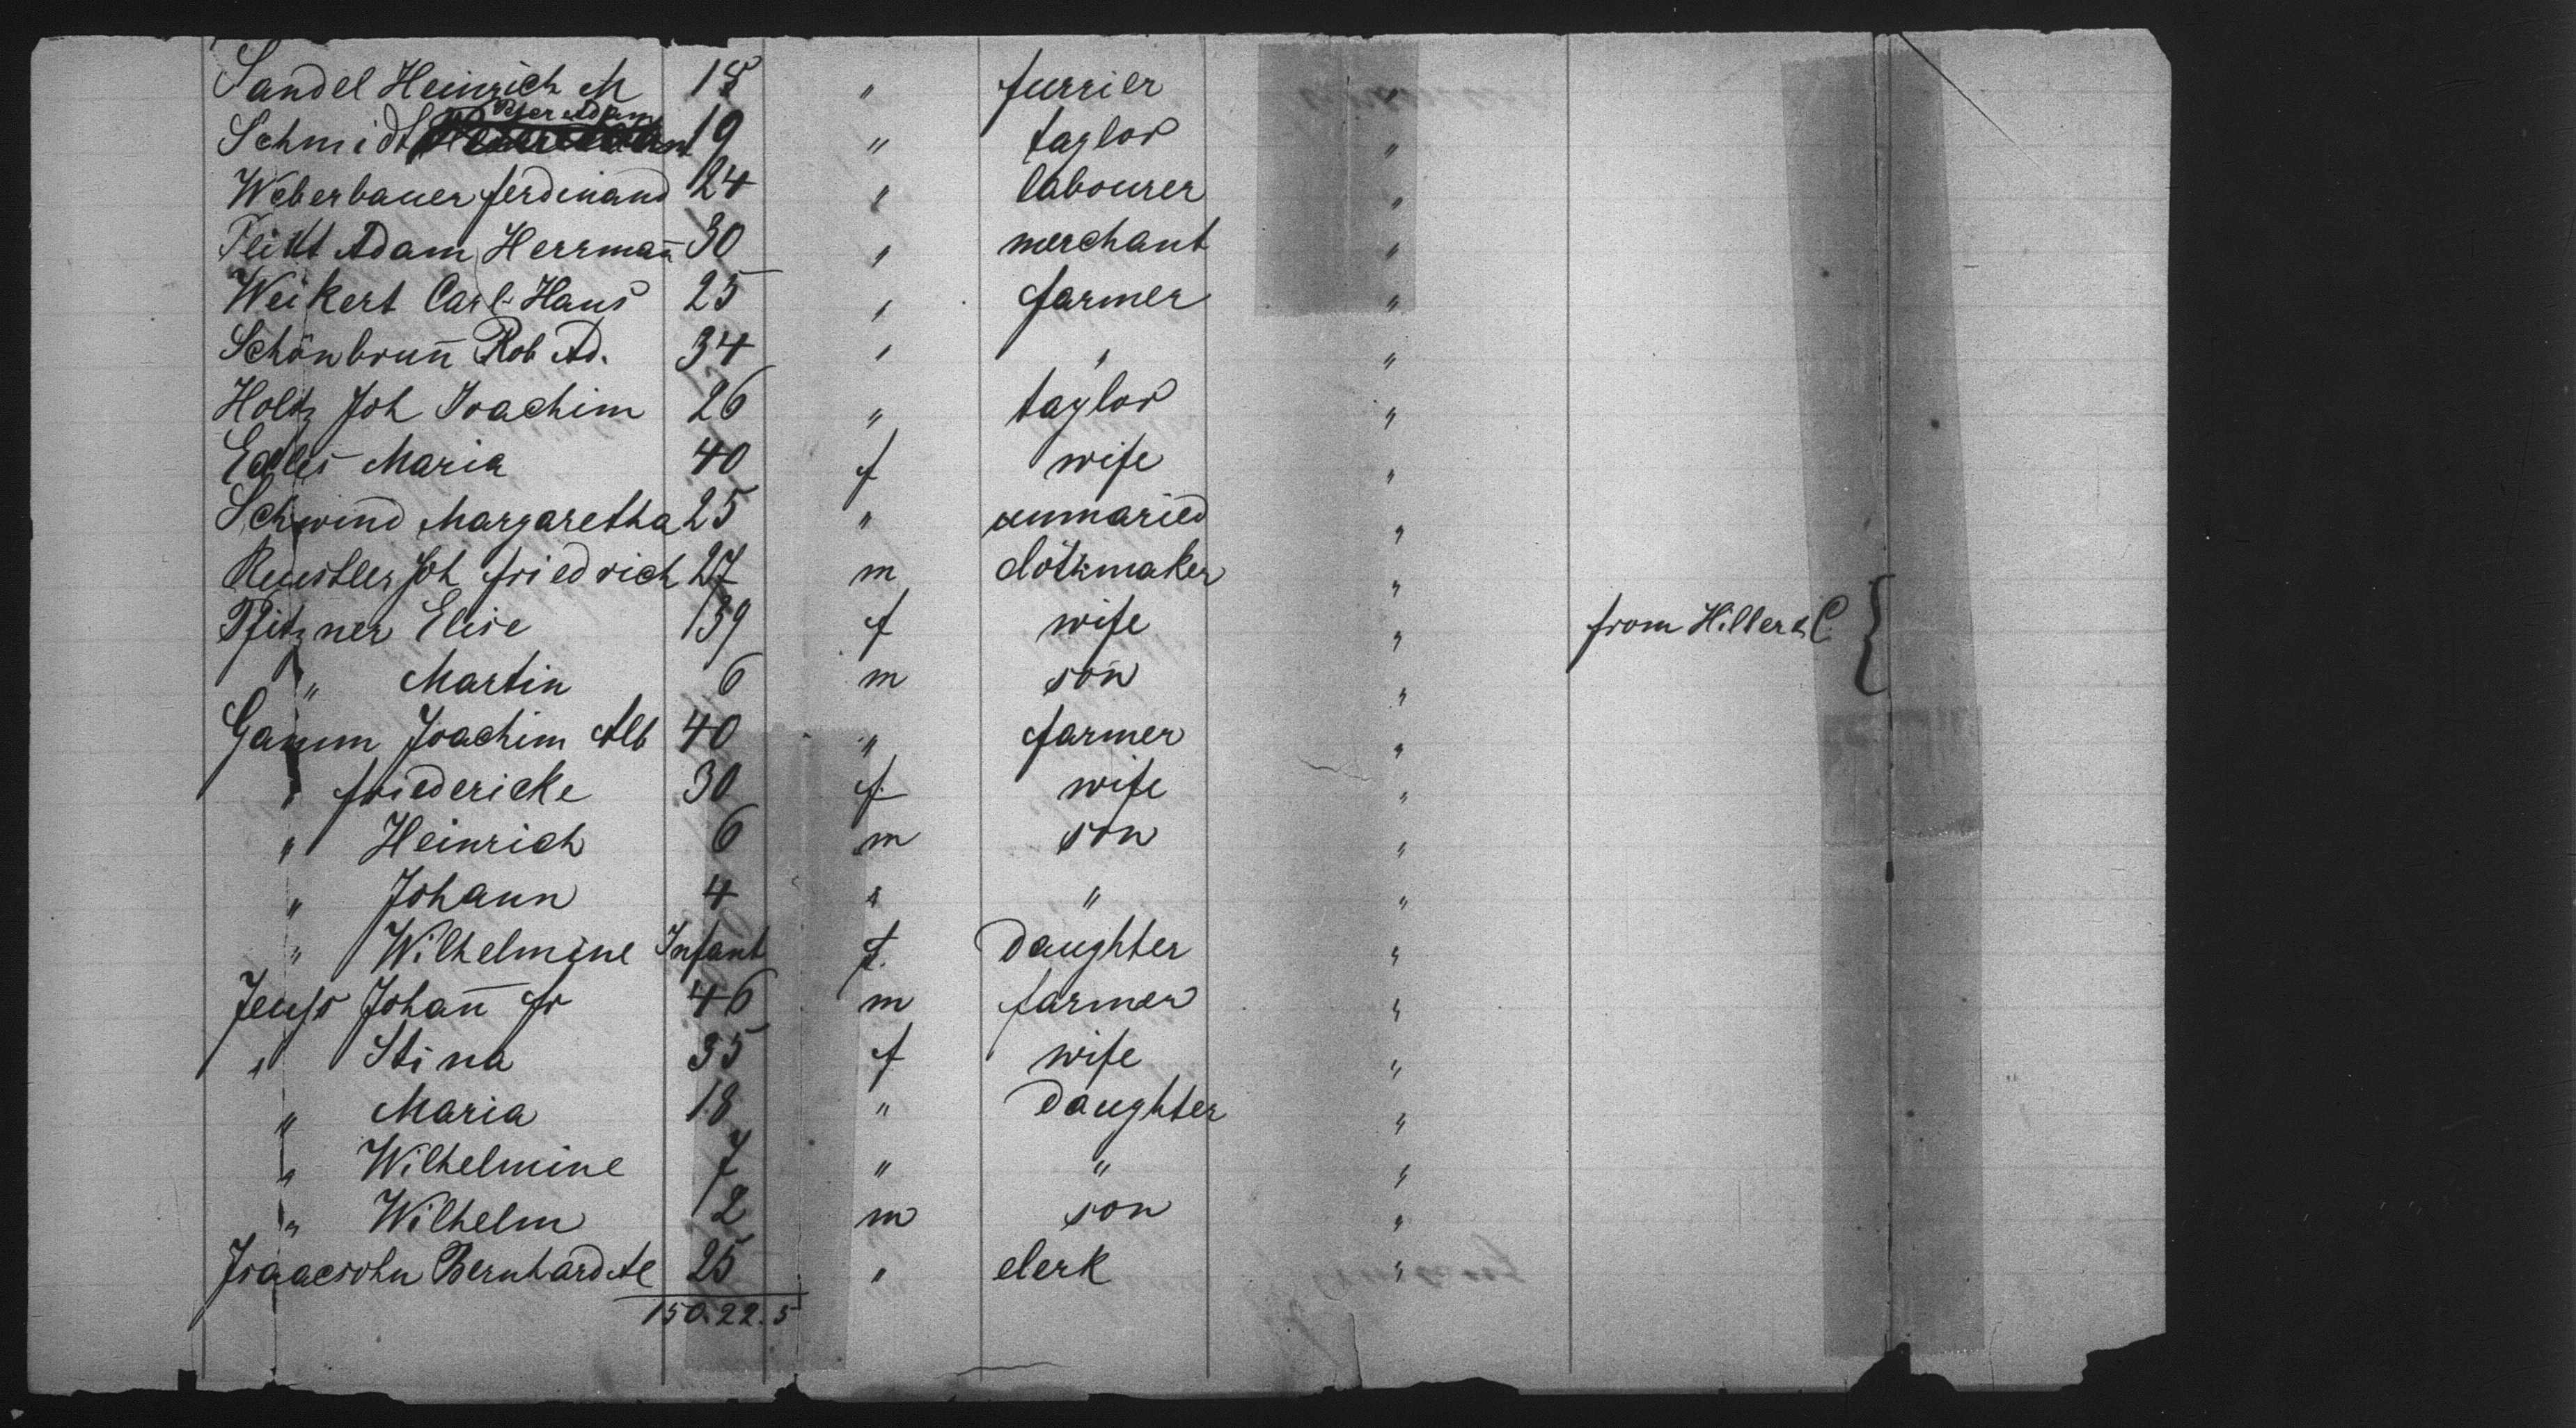 Sandel Heinrich M 18 " furrier "
Schmidt Peter Adam 19 " taylor "
Weberbauer ferdinand 24 " labourer "
Adam Herrmañ 30 " merchant "
Weikert Carl Hans 25 " farmer "
Schönbruñ Rob Ad. 34 " " "
Holtz Joh Joachim 26 " taylor "
Maria 40 f wife "
Schwind Margaretha 25 " unmaried "
Joh friedrich 27 m clothmaker "
Pfitzner Elise 39 f wife " from Hiller & C. {
" Martin 6 m son "
Gamm Joachim Alb 40 " farmer "
" friedericke 30 f. wife "
" Heinrich 6 m son "
" Johann 4 " " "
" Wilhelmine Infant f. daughter "
Johañ fr 46 m farmer "
" Stina 35 f wife "
" Maria 18 " daughter "
" Wilhelmine 7 " " "
" Wilhelm 2 m son "
Isaacsohn Bernhard Al 25 " clerk "
150. 22. 5